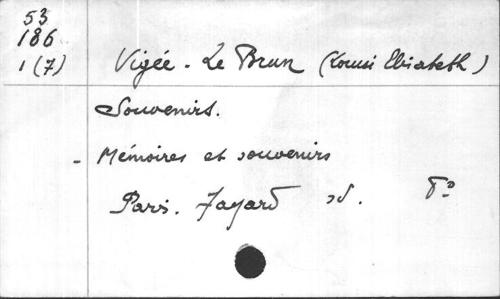 53
186
1(7)
Vigée - Le Brun (Louise Elisabeth)
Souvenirs.
- Mémoires et souvenirs
Paris. Fayard sd. 8°